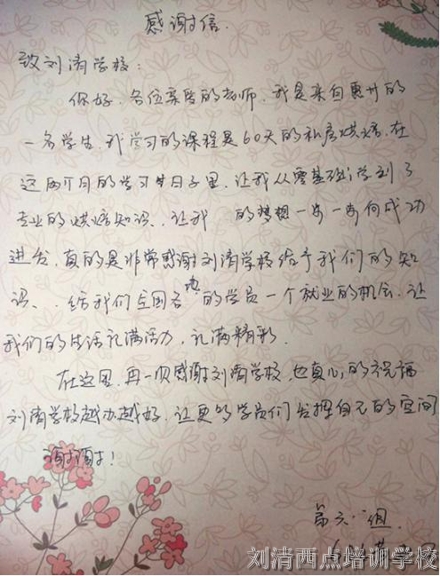 感谢信.
致刘清学校:
你好.各位亲爱的老师.我是来自惠州的
一名学生.我学习的课程是60天的私房烘焙.在
这两个月的学习日子里.让我从零基础学到了
专业的烘焙知识.让我 的梦想一步一步向成功
进发.真的是非常感谢刘清学校给予我们的知
识、给我们全国各地的学员一个就业的机会.让
我们的生活充满活力.充满精彩.
在这里.再一次感谢刘清学校.也真心的祝福
刘清学校越办越好.让更多学员们发挥自己的空间
谢谢!
第六 组.
刘清西点培训学校